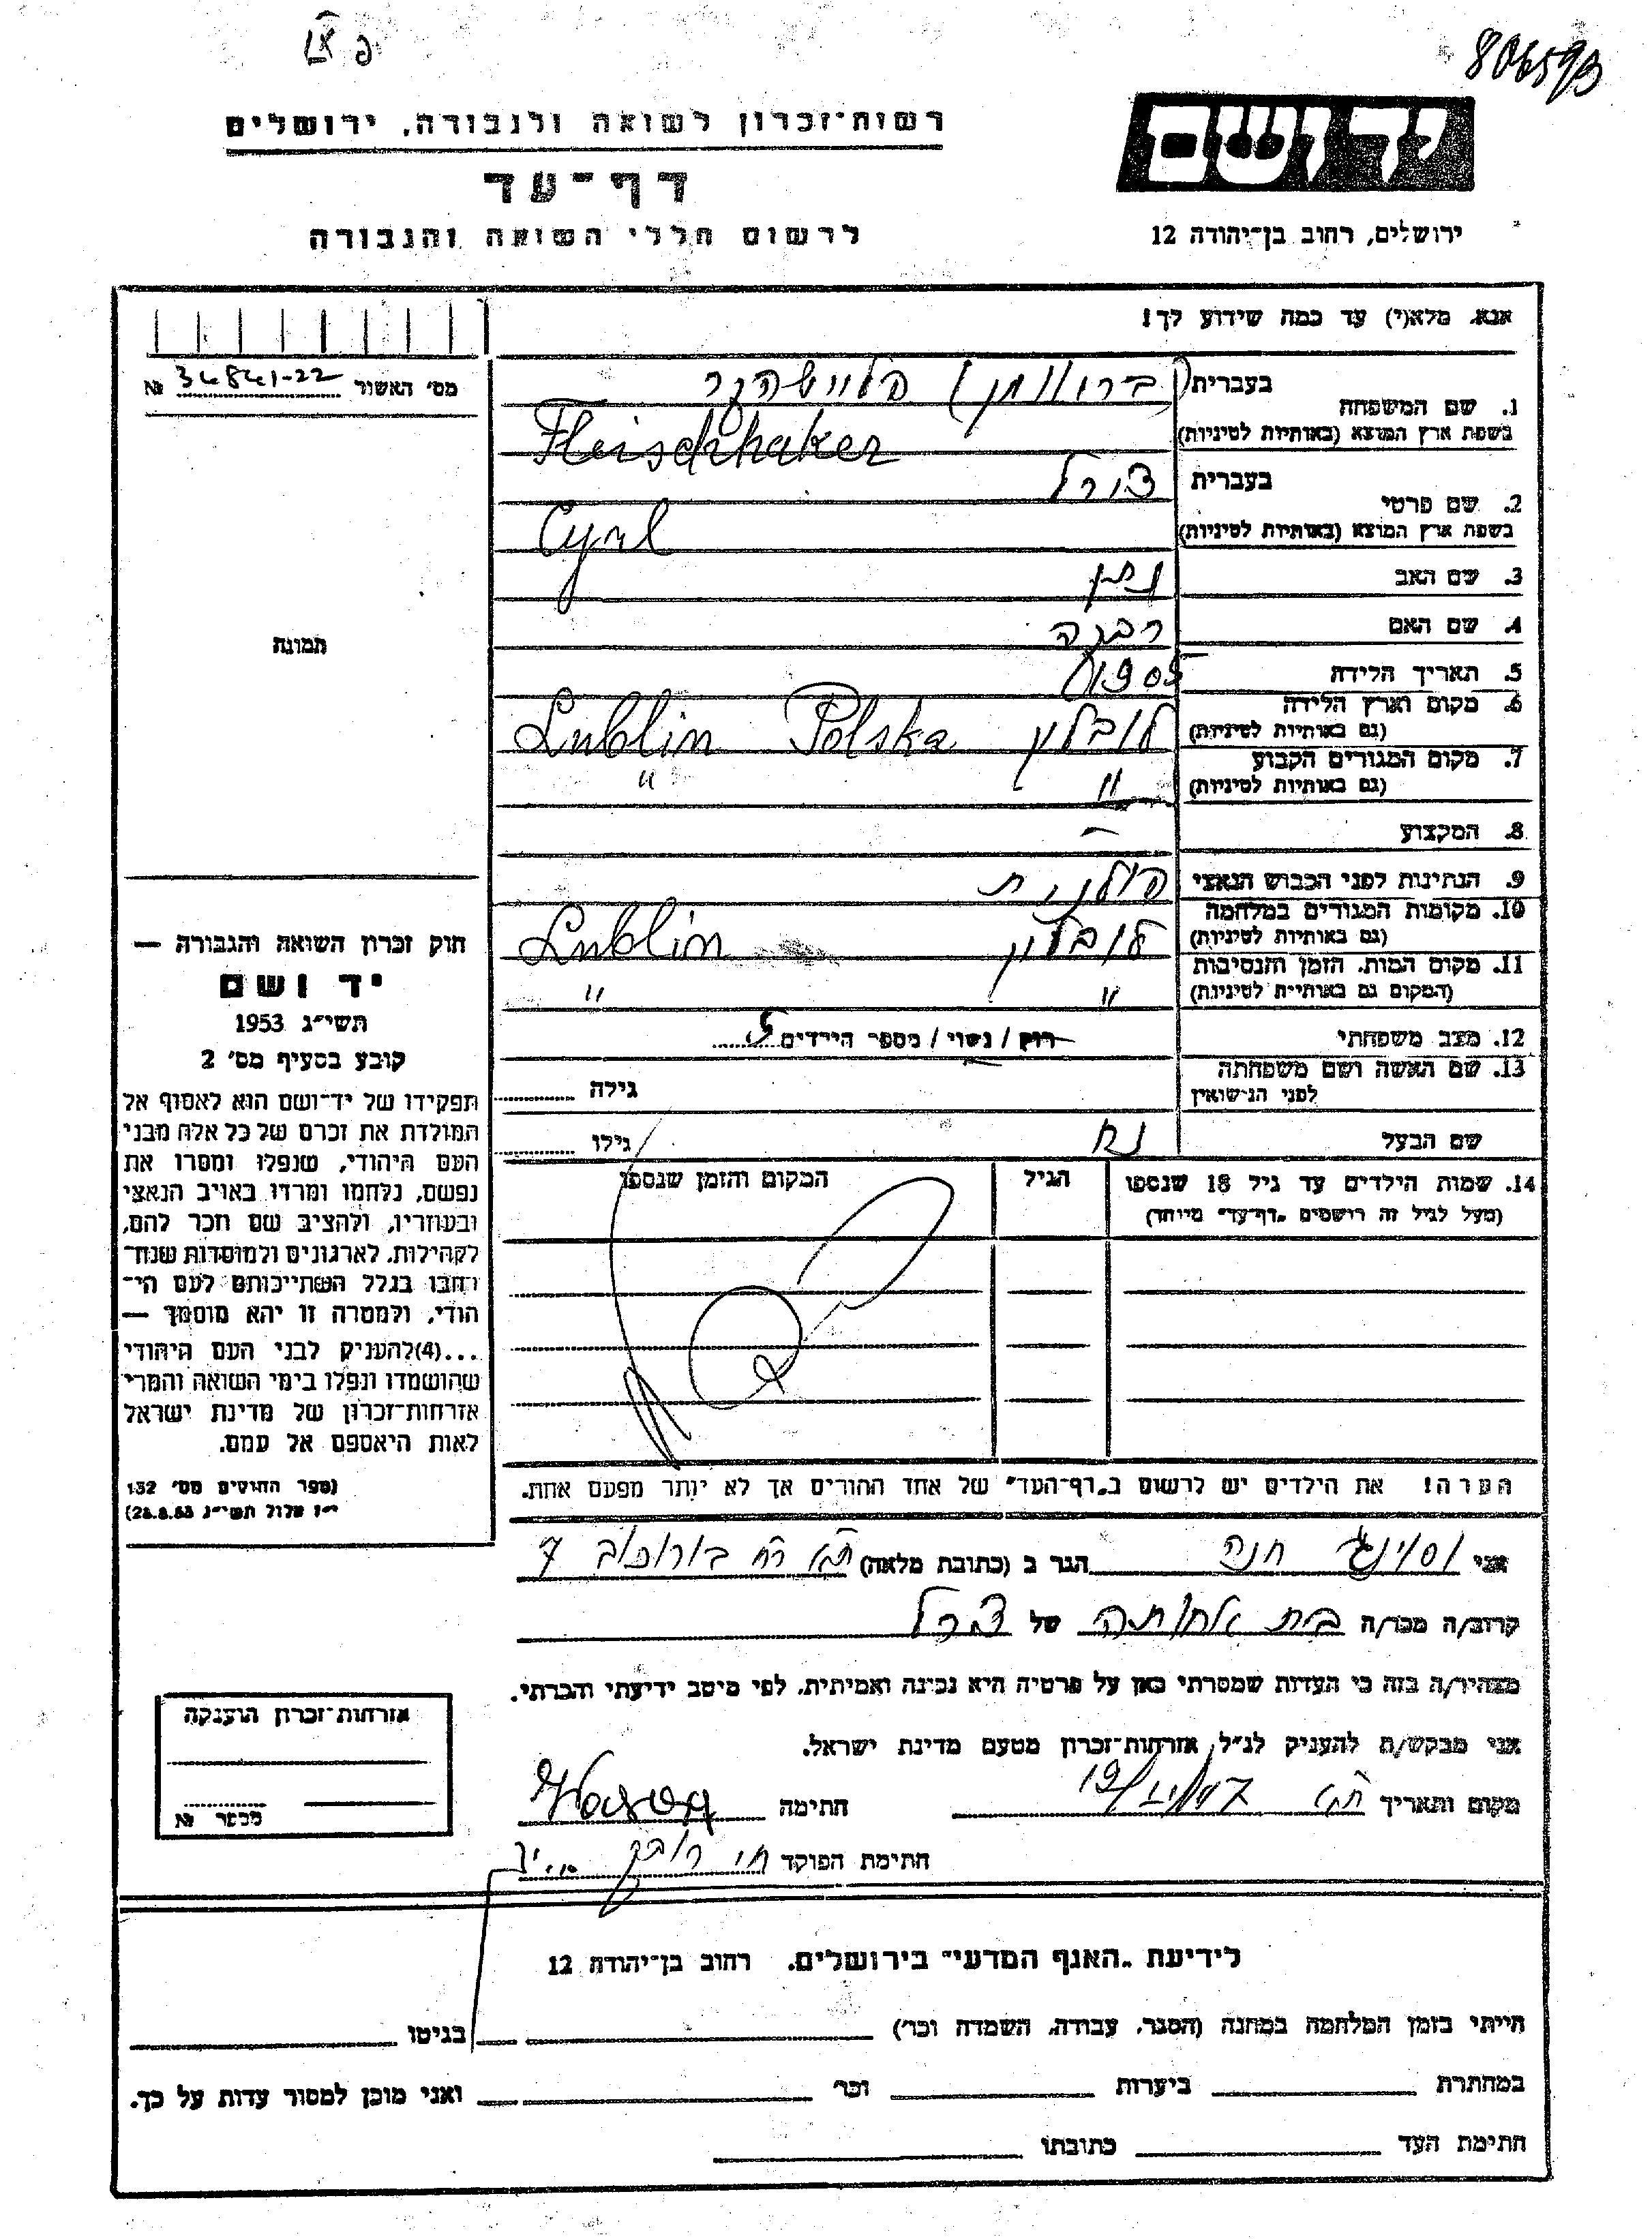 806593
רשות־זכרון לשואה ולגבורה, ירושלים
יד ושם
דף־עד
לרשום חללי השואה והגבורה
ירושלים, רחוב בן־יהודה 12
אנא, מלא(י) עד כמה שידוע לך!
מס׳ האשור 34841-22 №
1. שם המשפחה
בעברית פליישהקר
בשפת ארץ המוצא (באותיות לטיניות) Fleischhaker
2. שם פרטי
בעברית צירל
בשפת ארץ המוצא (באותיות לטיניות) Cyrl
3. שם האב נתן
4. שם האם רבקה
5. תאריך הלידה 1905
6. מקום וארץ הלידה לובלין Lublin Polska
(גם באותיות לטיניות)
7. מקום המגורים הקבוע " "
(גם באותיות לטיניות)
8. המקצוע –
9. הנתינות לפני הכבוש הנאצי פולנית
10. מקומות המגורים במלחמה לובלין Lublin
(גם באותיות לטיניות)
11. מקום המות, הזמן והנסיבות " "
(המקום גם באותיות לטיניות)
12. מצב משפחתי רווק / נשוי / מספר הילדים 5
13. שם האשה ושם משפחתה
לפני הנישואין
גילה
שם הבעל נח
גילו
14. שמות הילדים עד גיל 18 שנספו
(מעל לגיל זה רושמים „דף־עד״ מיוחד)
הגיל
המקום והזמן שנספו
הערה! את הילדים יש לרשום ב„דף־העד״ של אחד ההורים אך לא יותר מפעם אחת.
תמונה
חוק זכרון השואה והגבורה —
יד ושם
תשי״ג 1953
קובע בסעיף מס׳ 2
תפקידו של יד־ושם הוא לאסוף אל
המולדת את זכרם של כל אלה מבני
העם היהודי, שנפלו ומסרו את
נפשם, נלחמו ומרדו באויב הנאצי
ובעוזריו, ולהציב שם וזכר להם,
לקהילות, לארגונים ולמוסדות שנח־
רבו בגלל השתייכותם לעם הי־
הודי, ולמטרה זו יהא מוסמך —
...(4) להעניק לבני העם היהודי
שהושמדו ונפלו בימי השואה והמרי
אזרחות־זכרון של מדינת ישראל
לאות היאספם אל עמם.
(ספר החוקים מס׳ 132
י״ז אלול תשי״ג 28.8.53)
אני חנה הגר ב (כתובת מלאה) ת״א רח בורוכוב 7
קרוב/ה מכר/ה בת אחותה של צירל
מצהיר/ה בזה כי העדות שמסרתי כאן על פרטיה היא נכונה ואמיתית, לפי מיטב ידיעתי והכרתי.
אני מבקש/ת להעניק לנ״ל אזרחות־זכרון מטעם מדינת ישראל.
מקום ותאריך ת״א
חתימה
חתימת הפוקד
אזרחות־זכרון הוענקה
מספר №
לידיעת „האגף המדעי״ בירושלים, רחוב בן־יהודה 12
הייתי בזמן המלחמה במחנה (הסגר, עבודה, השמדה וכו׳) בגיטו
במחתרת ביערות וכו׳ ואני מוכן למסור עדות על כך.
חתימת העד כתובתו